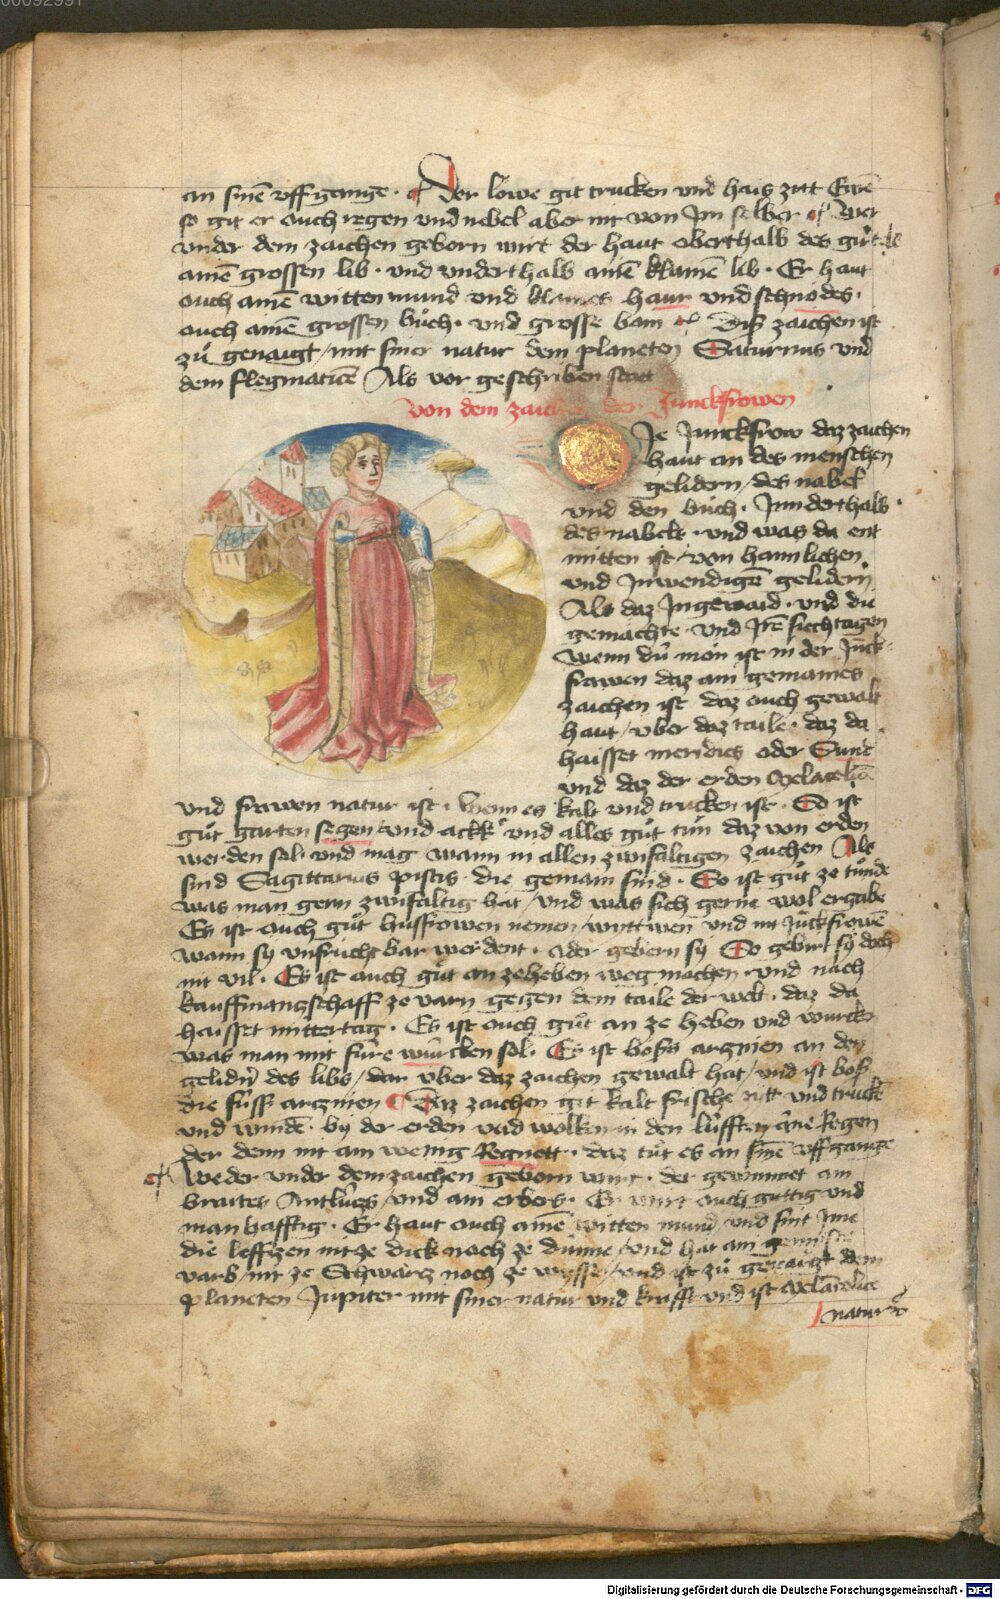 00092991
an sinē vffgange · Der löwe git trucken vnd hais zitt Ettē
so git er ouch regen vnd nebel aber nit von Im selber Wer
vnder dem zaichen geborn wirt der haut oberthalb des gürtels
ainē grossen lib · vnd vnderthalb ainē klainē lib · Er haut
ouch ainē witten mund vnd klaines haur vnd schnödes ·
ouch ainē grossen büch · vnd grosse bain Diß zaichen ist
zů genaigt / mit siner natur dem planeten Saturnus vnd
dem flegmaticē Als vor geschriben stat
von dem zaichen der Junckfrowen
Die Junckfrow daz zaichen
haut an des menschen
gelidern / des nabel
vnd den büch · Innderthalb
des nabels · vnd was da ent
mitten ist / von haimlichen
vnd Inwendigē gelidern
Als daz Ingewaid · vnd die
gemächte · vnd Irē siechtagen
Wenn dü mon ist in der Junck
frawen daz ain gemaines
zaichen ist daz ouch gewalt
haut / über daz taile · daz da
haisset meridies oder Sund
vnd daz der erden Melancoliā
vnd frawen natur ist · Wenn es kalt vnd trucken ist · So ist
gůt garten segen / vnd äckkr vnd alles gůt tůn daz von erden
werden sol · vnd mag wann in allen zwifaltigen zaichen Als
sind Sagittarius piscis · die gemain sind · So ist gůt ze tůnde
was man gern zwifaltig hat / vnd was sich gerne wol ergabe
Es ist ouch gůt hussfrowen nemen / wittwen vnd nit Jückfrowē
wann sy vnfruchtbar werdent · Oder gebern sy So gebirt sy doch
nit vil · Es ist ouch gůt an zeheben weg machen · vnd nach
kauffmangschaff ze varn gegen dem taile der welt · daz da
haisset mittertag · Es ist ouch gůt an ze heben vnd würcken
was man mit fure würcken sol · Es ist böss argnien an den
gelidrn des libs / dar über daz zaichen gewalt hat / vnd ist böß
die füss argnien Daz zaichen git kalt frische zitt vnd truckē
vnd windē · by der erden vnd wolken in den lüfften āne Regen
der denn mit ain wenig Regnett · daz tüt es an sinē vffgange
Weder vnder dem zaichen geborn wirt · der gewinnet ain
braites Antlües / vnd ain erbers · Er wirt ouch güttig vnd
manhafftig · Er haut ouch ainē witten mund vnd sint Ime
die leffzen nit ze dick noch ze dünne / vnd hat ain gemischte
varb / nit ze Schwartz noch ze wysse / vnd ist zů genaigt dem
planeten Jupiter mit siner natur vnd krafft vnd ist Melācolice
natur
Digitalisierung gefördert durch die Deutsche Forschungsgemeinschaft - DFG